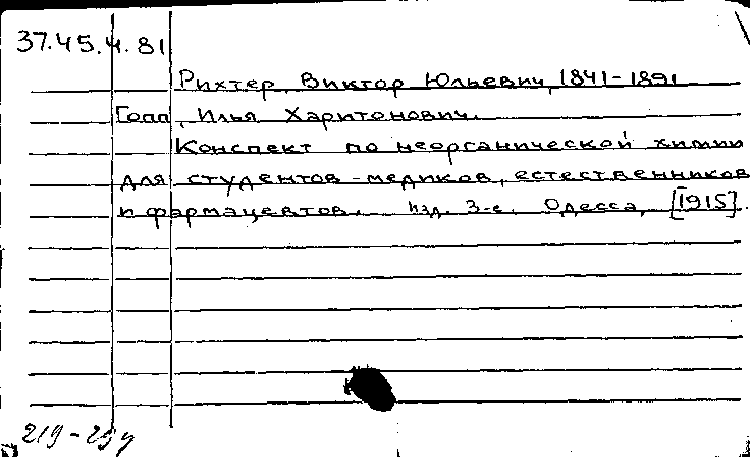 37.45.4.81
Рихтер, Виктор Юльевич, 1841-1891
Гопп, Илья Харитонович.
Конспект по неорганической химии
для студентов-медиков, естественников
и фармацевтов. Изд. 3-е. Одесса, [1915].
219-29у